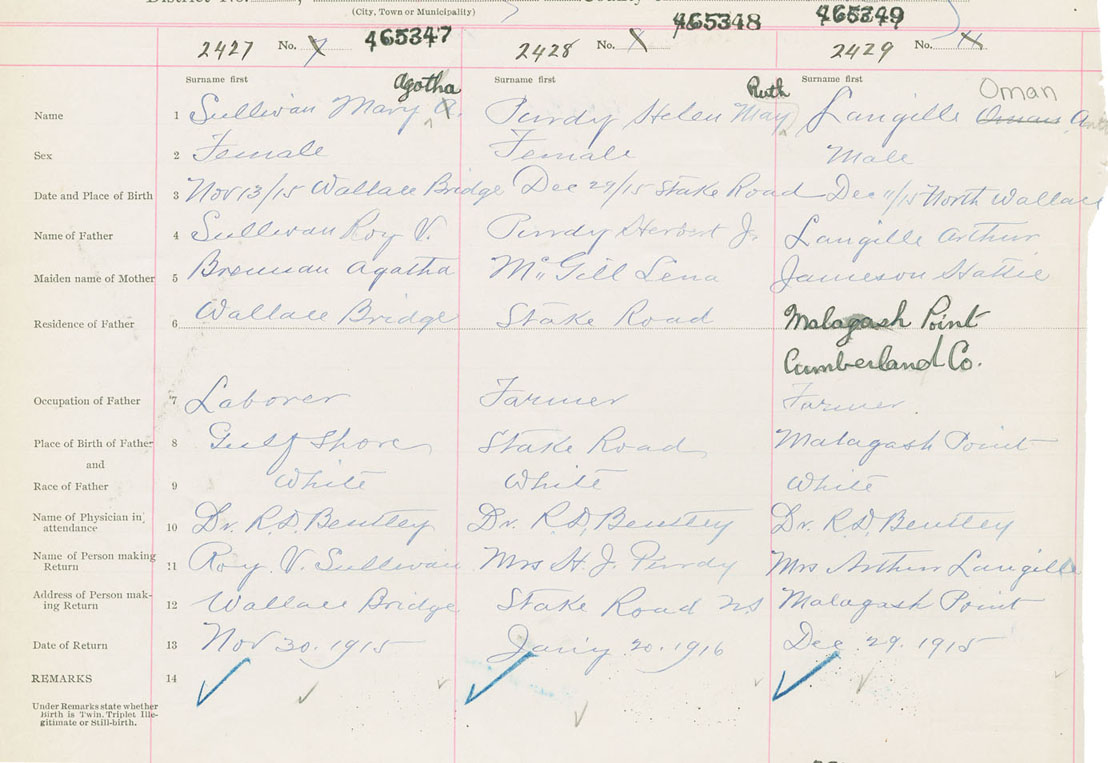 District No.
(City, Town or Municipality)
2427 No. 7 465347 2428 No. X 465348 2429 No. 465349
Surname first Agatha Surname first Ruth Surname first Oman
Name 1 Sullivan Mary A. Purdy Helen May Langille
Sex 2 Female Female Male
Date and Place of Birth 3 Nov 13/15 Wallace Bridge Dec 29/15 Stake Road Dec 11/15 North Wallace
Name of Father 4 Sullivan Roy V. Purdy Herbert J. Langille Arthur
Maiden name of Mother 5 Brennan Agatha McGill Lena Jameson Hattie
Residence of Father 6 Wallace Bridge Stake Road Malagash Point
Cumberland Co.
Occupation of Father 7 Laborer Farmer Farmer.
Place of Birth of Father 8 Gulf Shore Stake Road Malagash Point
and
Race of Father 9 White White White
Name of Physician in attendance 10 Dr. R.D. Bentley Dr. R.D. Bentley Dr. R.D. Bentley
Name of Person making Return 11 Roy. V. Sullivan Mrs H. J. Purdy Mrs Arthur Langille
Address of Person making Return 12 Wallace Bridge Stake Road NS Malagash Point
Date of Return 13 Nov 30. 1915 Jan'y 20. 1916 Dec 29. 1915
REMARKS 14
Under Remarks state whether
Birth is Twin, Triplet Ille-
gitimate or Still-birth.